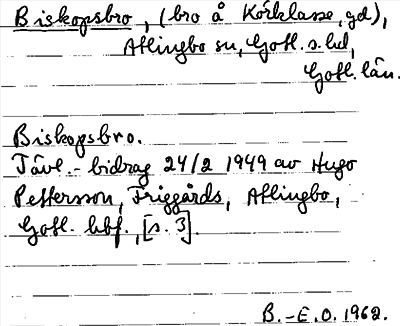 Biskopsbro, (bro å Körklasse, gd),
Atlingbo sn, Gotl. s. hd,
Gotl. län.
Biskopsbro.
Tävl.-bidrag 24/2 1949 av Hugo
Pettersson, Friggårds, Atlingbo,
Gotl. hbf., [s. 3].
B.-E.O. 1962.